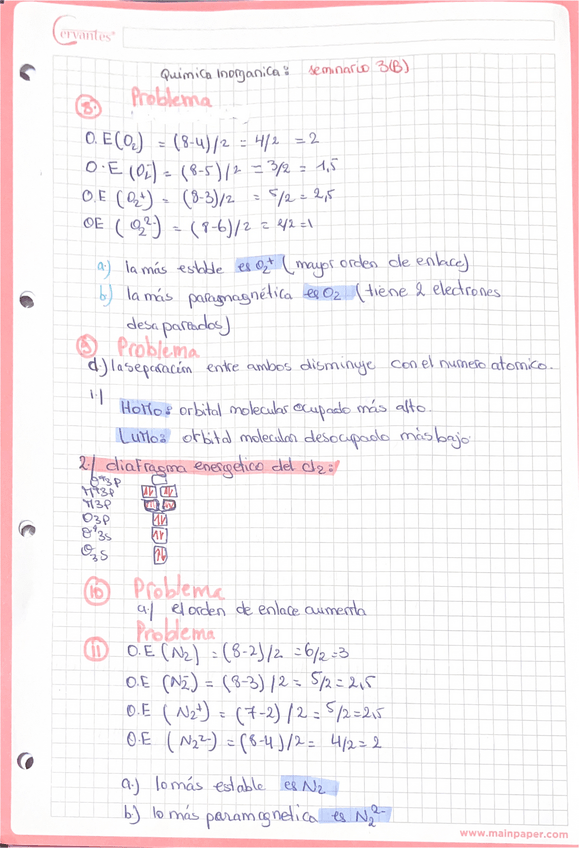 Cervantes
Química Inorganica: seminario 3(B)
8. Problema
O.E(O₂) = (8-4)/2 = 4/2 = 2
O.E (O₂⁻) = (8-5)/2 = 3/2 = 1,5
O.E (O₂⁺) = (8-3)/2 = 5/2 = 2,5
OE (O₂²⁻) = (8-6)/2 = 2/2 = 1
a.) la más estable es O₂⁺ (mayor orden de enlace)
b) la más paragmagnética es O₂ (tiene 2 electrones
desaparados)
9 Problema
d.) la separación entre ambos disminuje con el numero atomico.
1.)
Homo: orbital molecular ocupado más alto.
Lumo: orbital molecular desocupado más bajo.
2.) diafragma energetico del Cl₂:
σ*3P
π*3P
π3P
σ3P
σ*3s
σ3s
10 Problema
a.) el orden de enlace aumenta
Problema
11 O.E (N₂) = (8-2)/2 = 6/2 = 3
O.E (N₂⁻) = (8-3)/2 = 5/2 = 2,5
O.E (N₂⁺) = (7-2)/2 = 5/2 = 2,5
O.E (N₂²⁻) = (8-4)/2 = 4/2 = 2
a.) lo más estable es N₂
b.) lo más paramagnetica es N₂²⁻
www.mainpaper.com